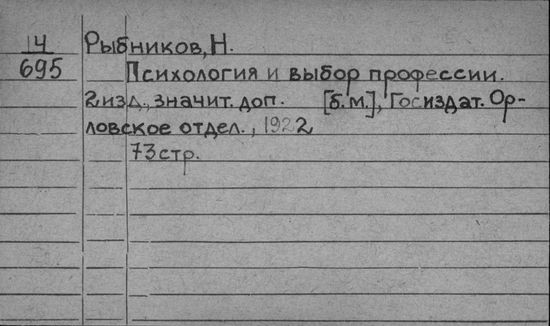 14 Рыбников, Н.
695 Психология и выбор профессии.
2 изд., значит. доп. [б.м.], Госиздат. Ор-
ловское отдел., 1922
73 стр.